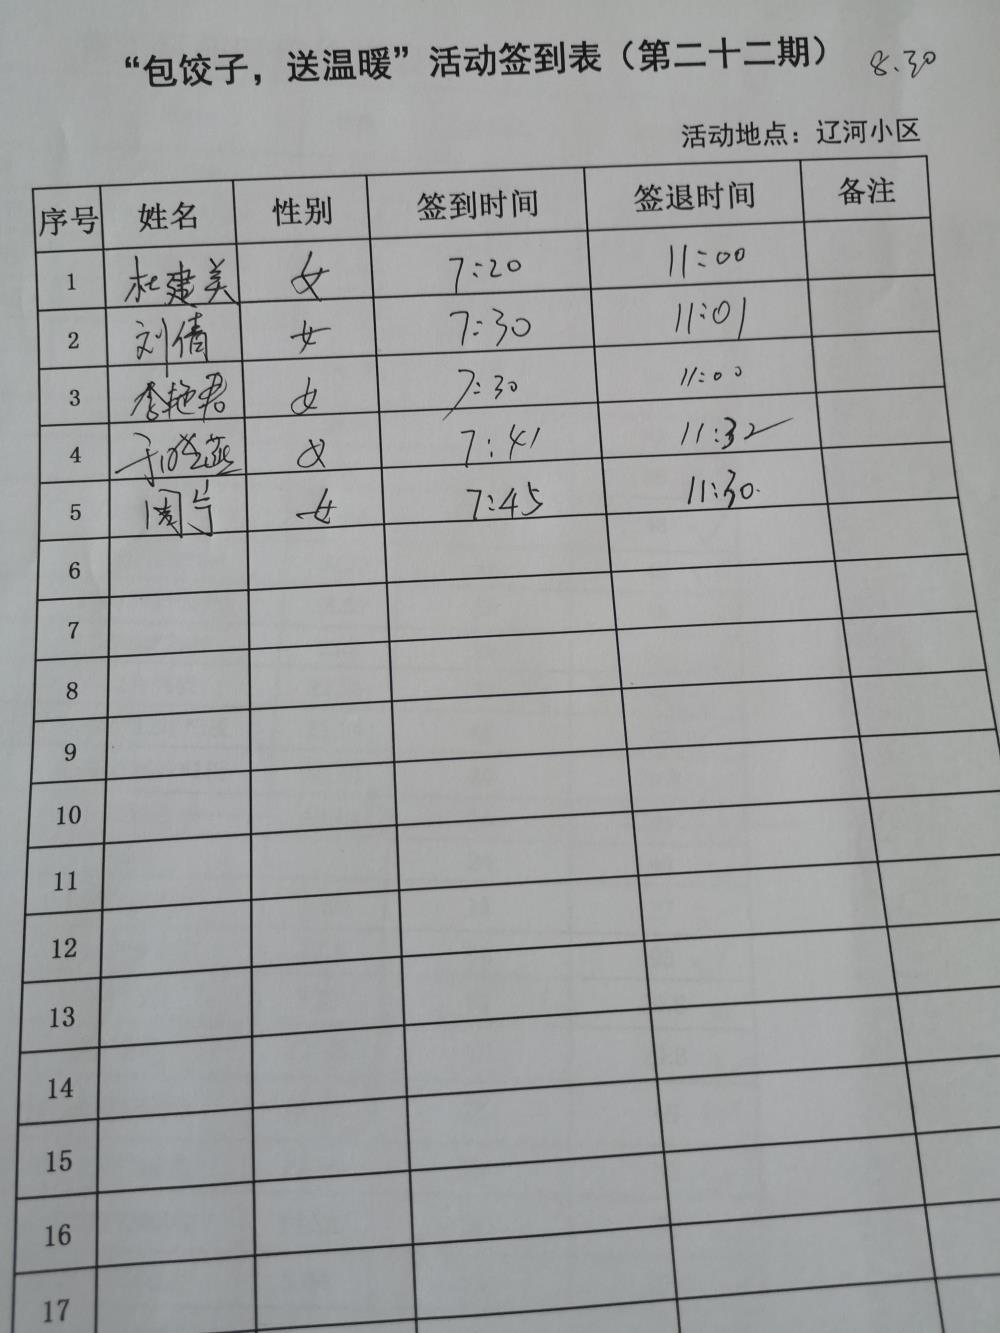 “包饺子，送温暖”活动签到表（第二十二期） 8.30
活动地点：辽河小区
序号 姓名 性别 签到时间 签退时间 备注
1 杜建美 女 7:20 11:00
2 刘倩 女 7:30 11:01
3 李艳君 女 7:30 11:00
4 于晓燕 女 7:41 11:32
5 周宁 女 7:45 11:30
6
7
8
9
10
11
12
13
14
15
16
17